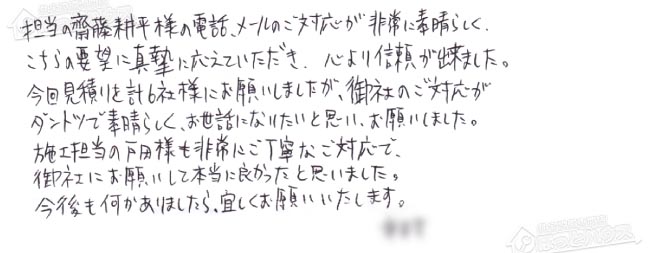 担当の齋藤耕平様の電話、メールのご対応が非常に素晴らしく、
こちらの要望に真摯に応えていただき、心より信頼が出来ました。
今回見積りを計6社様にお願いしましたが、御社のご対応が
ダントツで素晴らしく、お世話になりたいと思い、お願いしました。
施工担当の戸田様も非常にご丁寧なご対応で、
御社にお願いして本当に良かったと思いました。
今後も何かありましたら、宜しくお願いいたします。